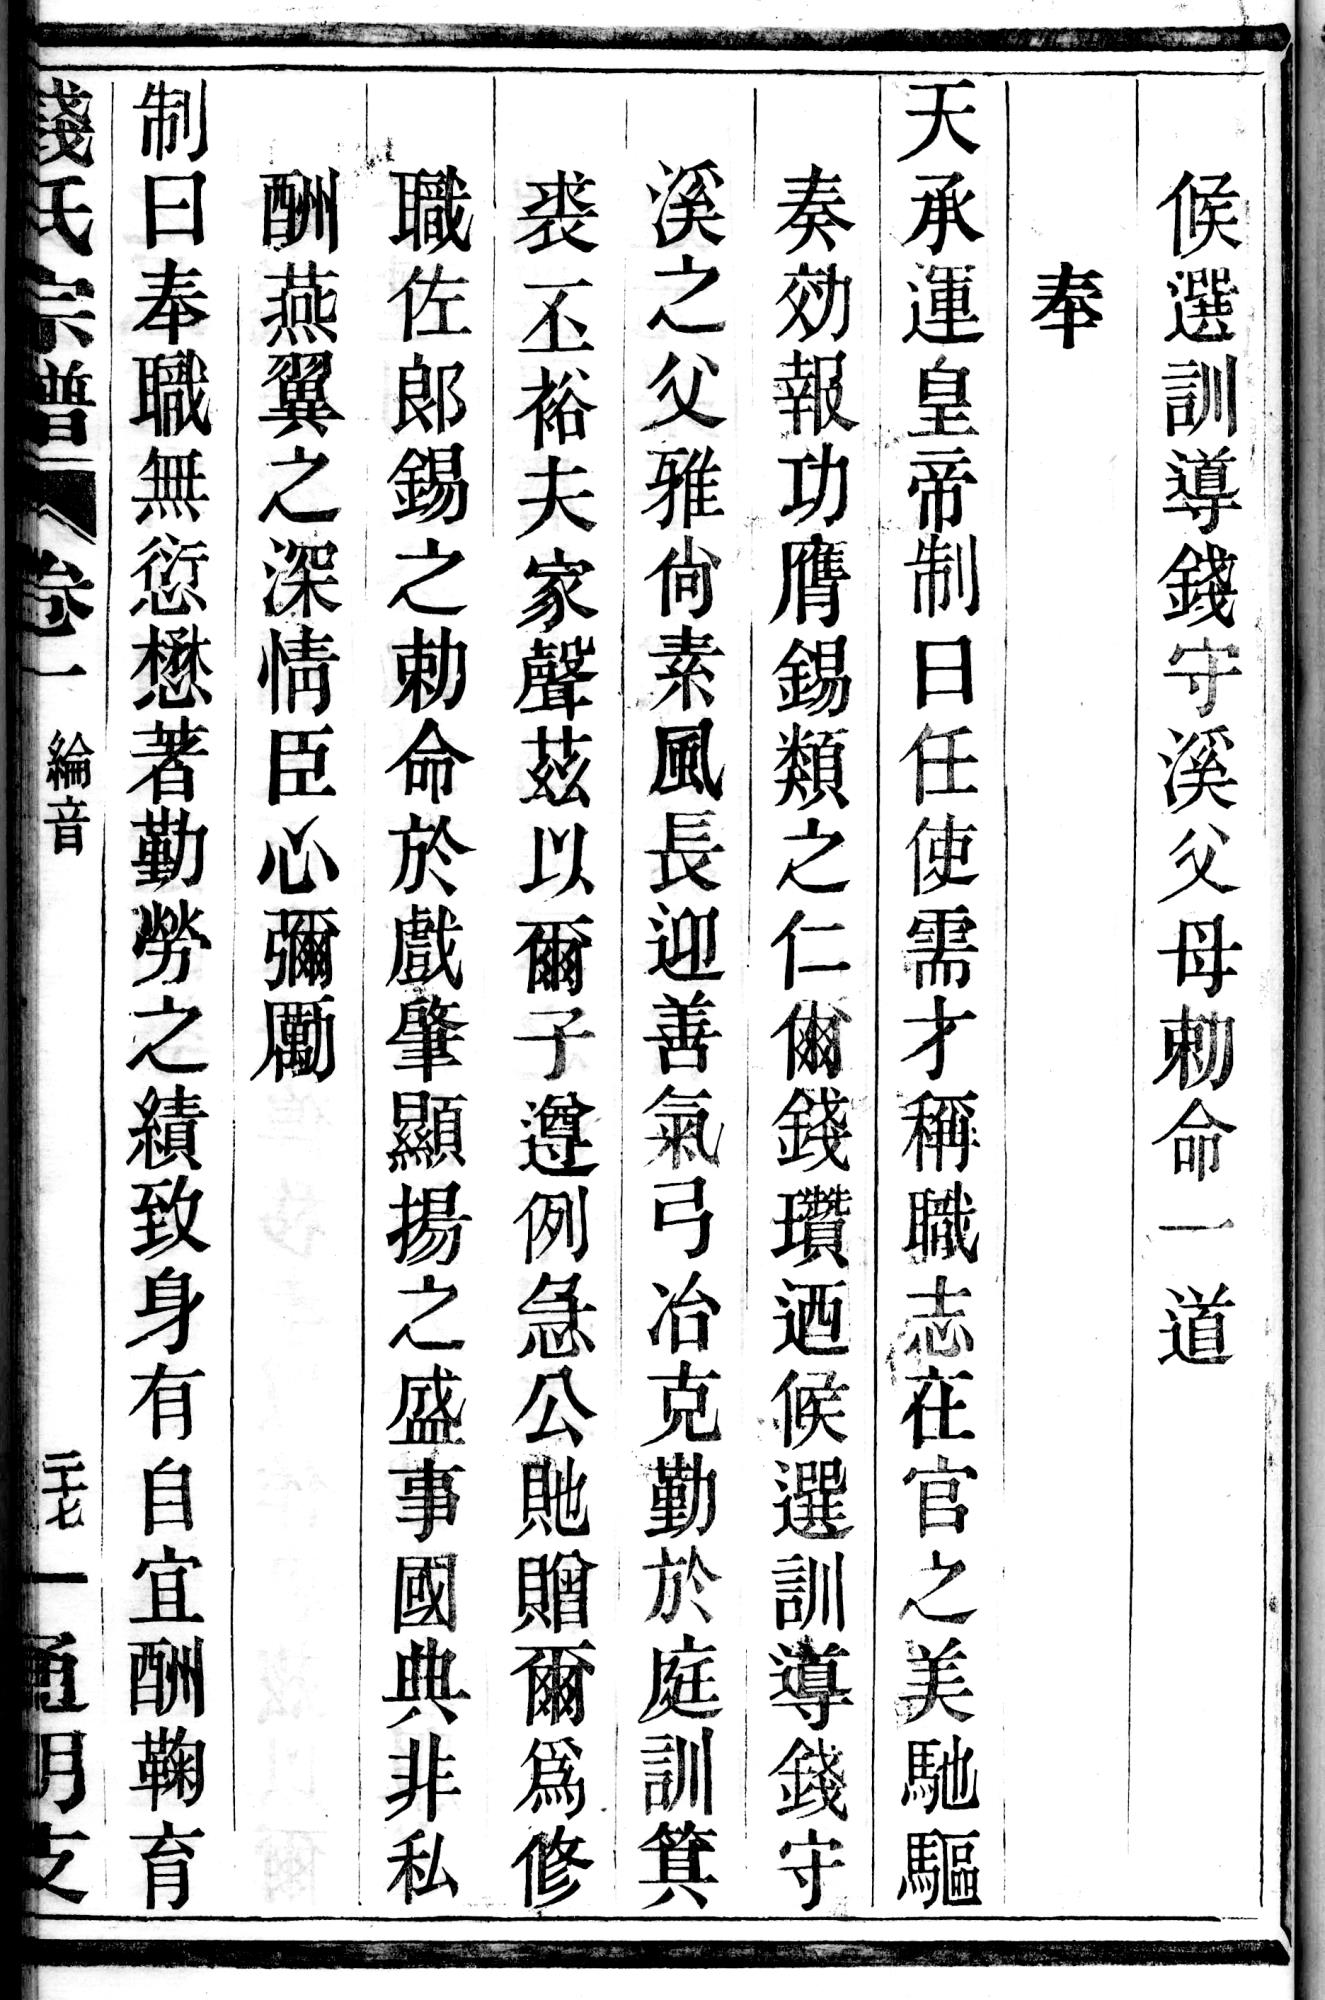 候選訓導錢守溪父母勅命一道
奉
天承運皇帝制曰任使需才稱職志在官之美馳驅
奏効報功膺錫類之仁爾錢瓚迺候選訓導錢守
溪之父雅尙素風長迎善氣弓冶克勤於庭訓箕
裘丕裕夫家聲茲以爾子遵例急公貤贈爾爲修
職佐郎錫之勅命於戲肇顯揚之盛事國典非私
酬燕翼之深情臣心彌勵
制曰奉職無愆懋著勤勞之績致身有自宜酬鞠育
錢氏宗譜 卷一 綸音 二十七 一 通明支